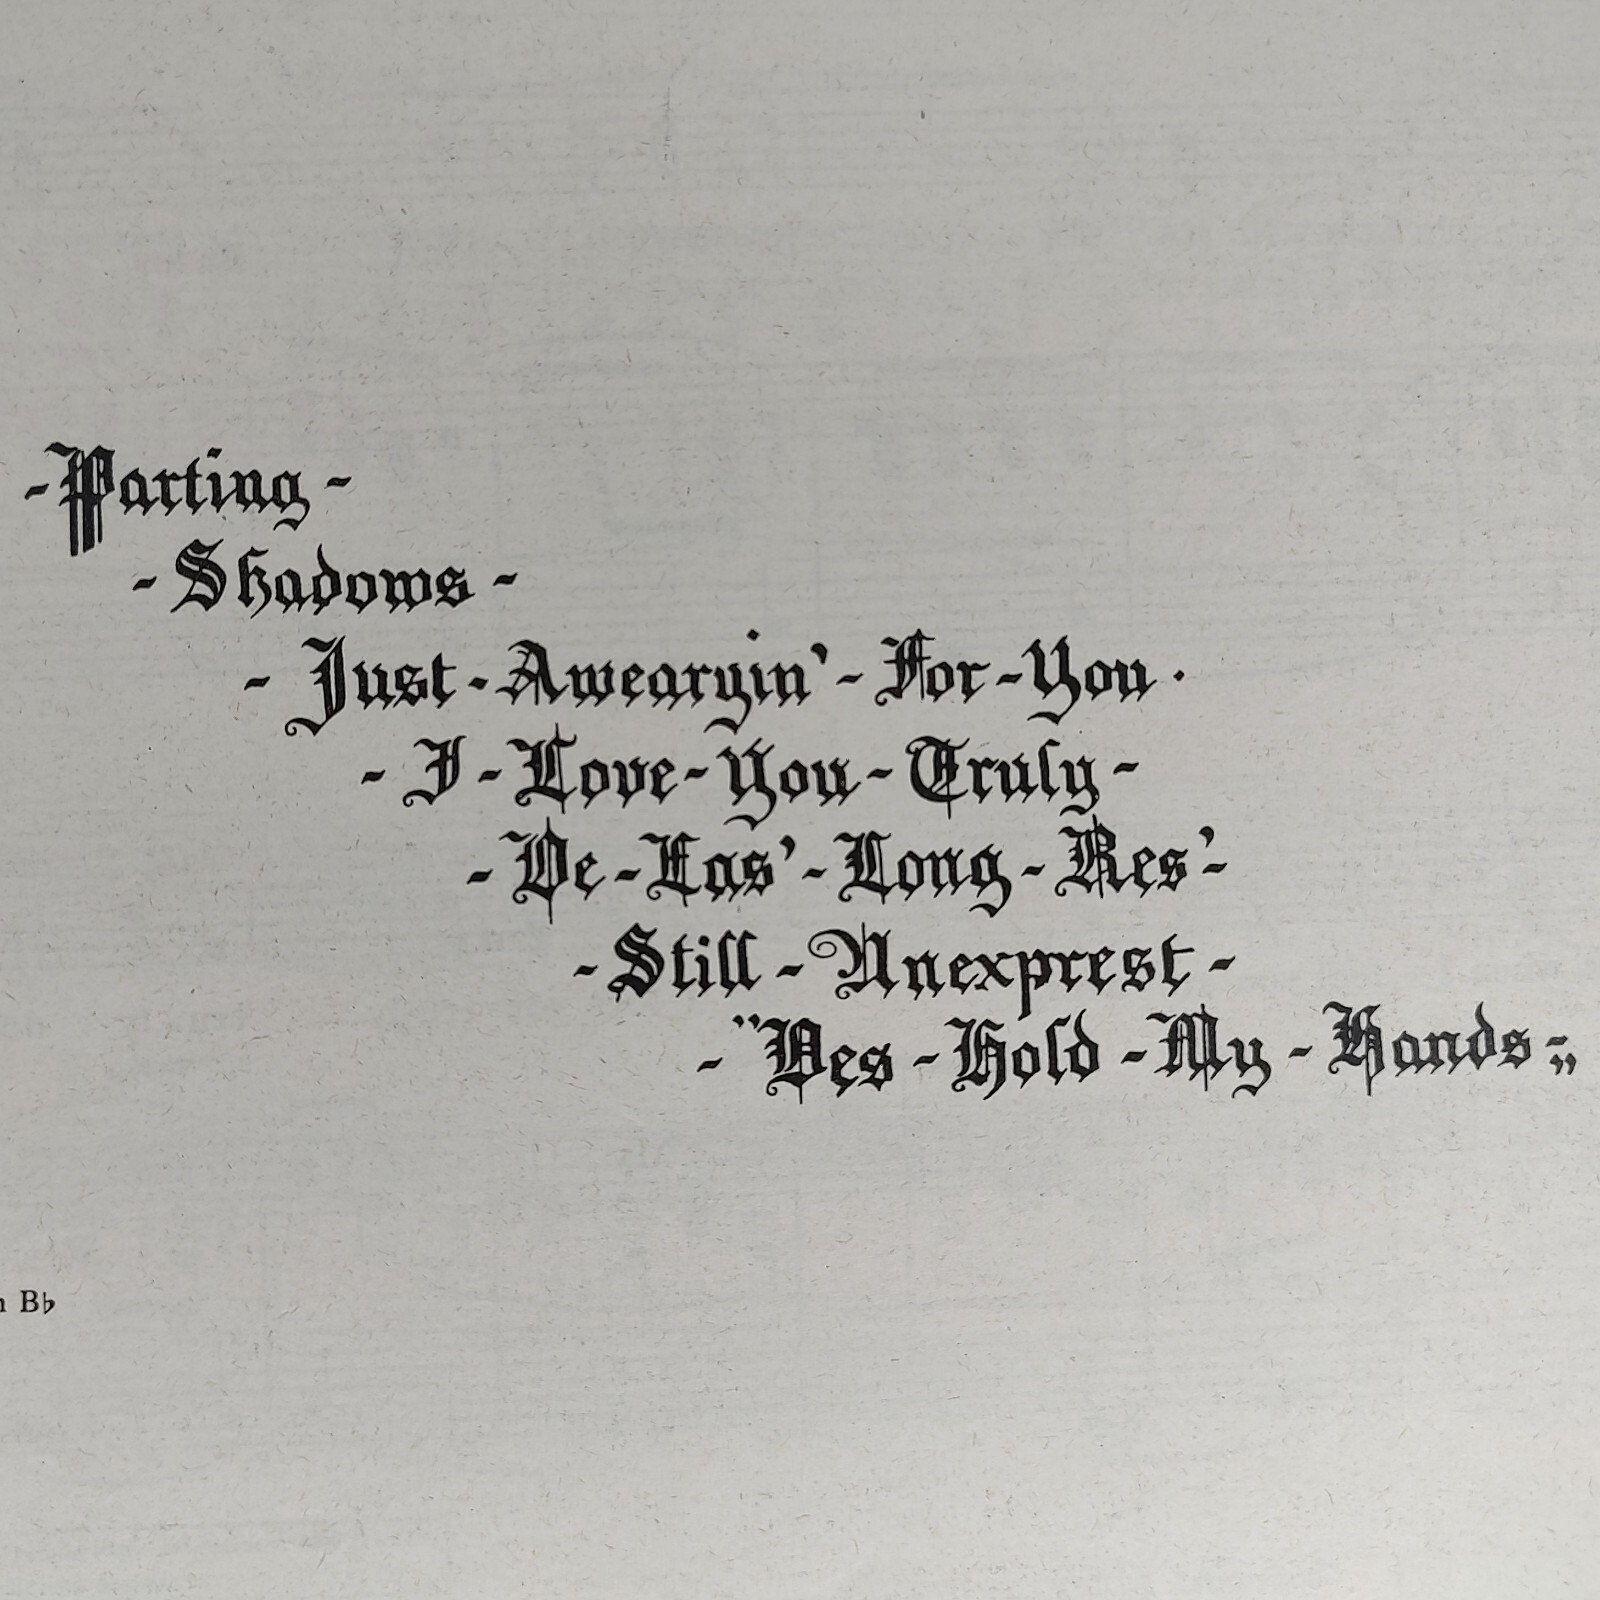 -Parting-
-Shadows-
- Just - Awearyin' - For - You .
- I - Love - You - Truly -
- De - Las' - Long - Res' -
- Still - Unexprest -
- "Des - Hold - My - Hands - „
B♭